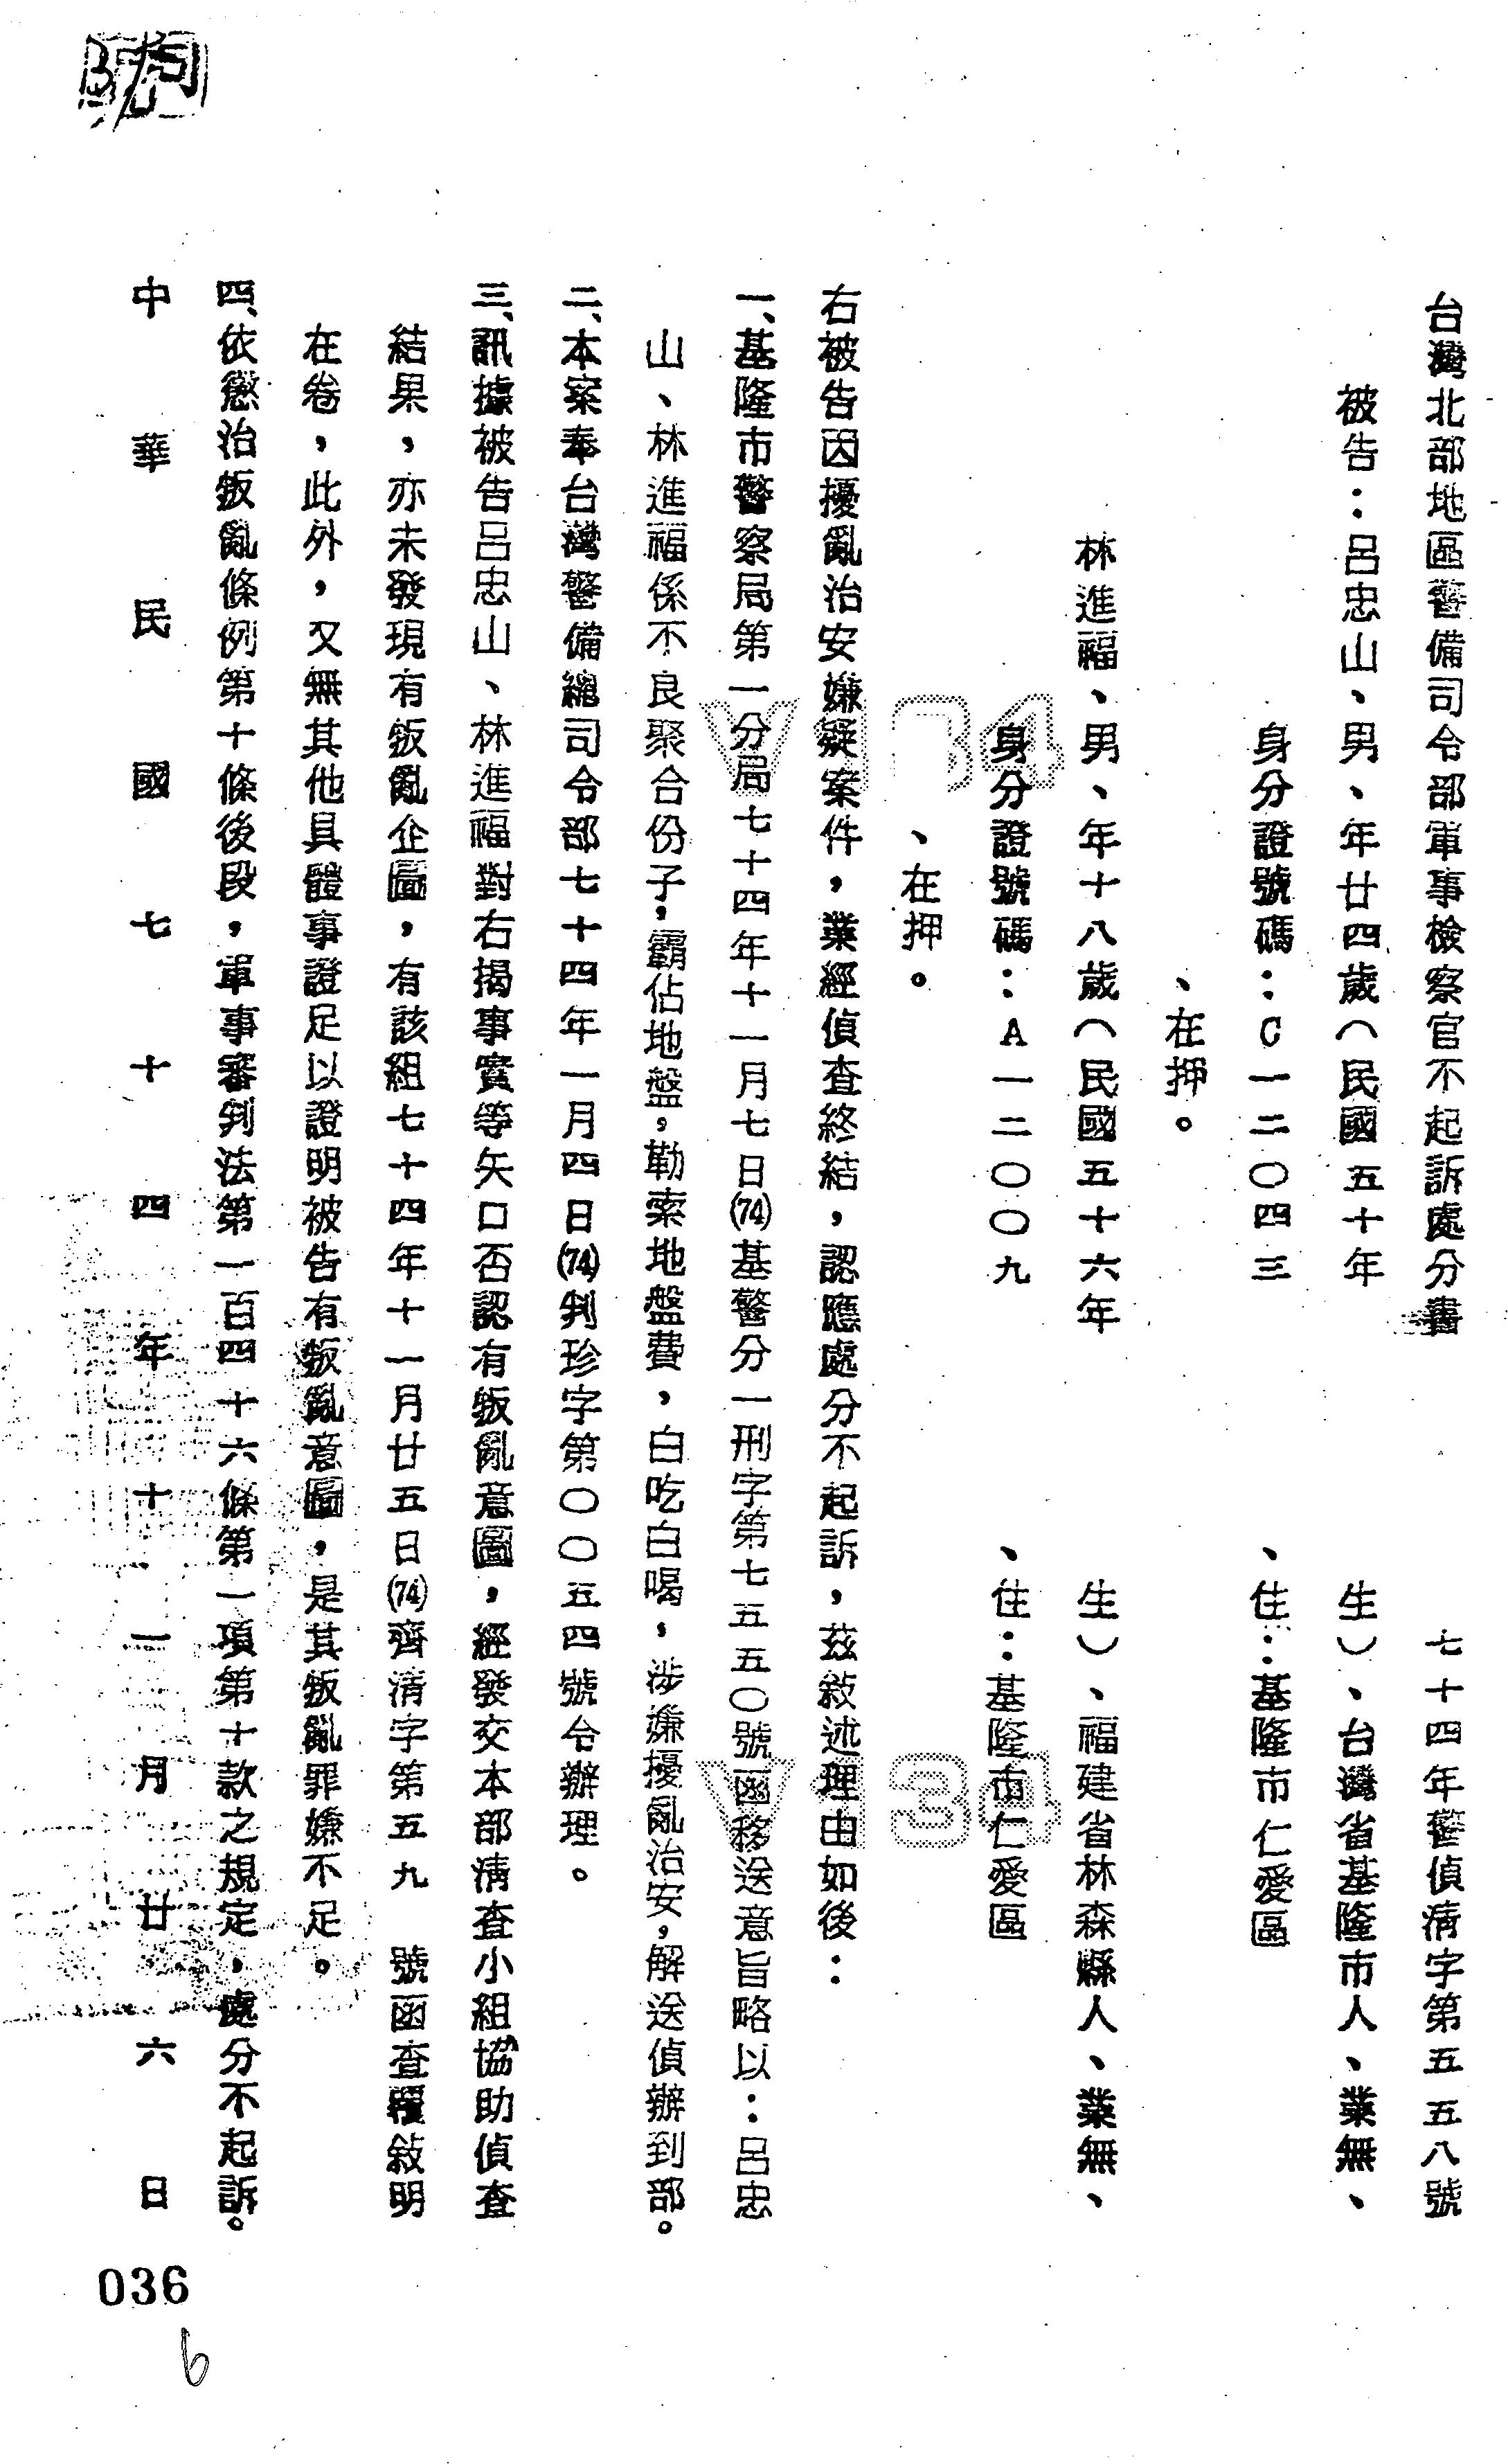 台灣北部地區警備司令部軍事檢察官不起訴處分書
七十四年警偵清字第五五八號
被告：呂忠山、男、年廿四歲（民國五十年
生）、台灣省基隆市人、業無、
身分證號碼：C一二〇四三
、住：基隆市仁愛區
、在押。
林進福、男、年十八歲（民國五十六年
生）、福建省林森縣人、業無、
身分證號碼：A一二〇〇九
、住：基隆市仁愛區
、在押。
右被告因擾亂治安嫌疑案件，業經偵查終結，認應處分不起訴，茲敍述理由如後：
一、基隆市警察局第一分局七十四年十一月七日(74)基警分一刑字第七五五〇號函移送意旨略以：呂忠
山、林進福係不良聚合份子，霸佔地盤，勒索地盤費，白吃白喝，涉嫌擾亂治安，解送偵辦到部。
二、本案奉台灣警備總司令部七十四年一月四日(74)判珍字第〇〇五四號令辦理。
三、訊據被告呂忠山、林進福對右揭事實等矢口否認有叛亂意圖，經發交本部清查小組協助偵查
結果，亦未發現有叛亂企圖，有該組七十四年十一月廿五日(74)齊清字第五九　號函查覆敍明
在卷，此外，又無其他具體事證足以證明被告有叛亂意圖，是其叛亂罪嫌不足。
四、依懲治叛亂條例第十條後段，軍事審判法第一百四十六條第一項第十款之規定，處分不起訴。
中華民國七十四年十一月廿六日
036
6
V134
V134